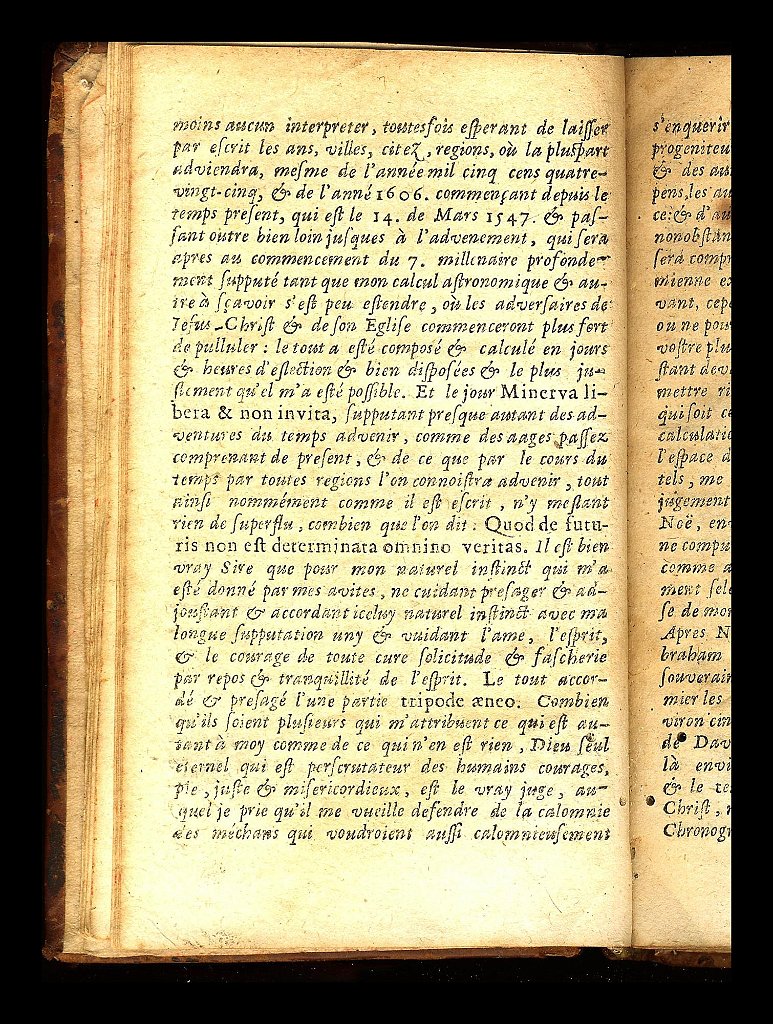 moins aucun interpreter, toutesfois esperant de laisser
par escrit les ans, villes, citez, regions, où la pluspart
adviendra, mesme de l'année mil cinq cens quatre-
vingt-cinq, & de l'anné 1606. commençant depuis le
temps present, qui est le 14. de Mars 1547. & pas-
sant outre bien loin jusques à l'advenement, qui sera
apres au commencement du 7. millenaire profonde-
ment supputé tant que mon calcul astronomique & au-
tre à sçavoir s'est peu estendre, où les adversaires de
Jesus-Christ & de son Eglise commenceront plus fort
de pulluler : le tout a esté composé & calculé en jours
& heures d'eslection & bien disposées & le plus ju-
stement qu'el m'a esté possible. Et le jour Minerva li-
bera & non invita, supputant presque autant des ad-
ventures du temps advenir, comme des aages passez
comprenant de present, & de ce que par le cours du
temps par toutes regions l'on connoistra advenir, tout
ainsi nommément comme il est escrit, n'y meslant
rien de superflu, combien que l'on dit : Quod de futu-
ris non est determinata omnino veritas. Il est bien
vray Sire que pour mon naturel instinct qui m'a
esté donné par mes avites, ne cuidant presager & ad-
joustant & accordant iceluy naturel instinct avec ma
longue supputation uny & vuidant l'ame, l'esprit,
& le courage de toute cure solicitude & fascherie
par repos & tranquillité de l'esprit. Le tout accor-
dé & presagé l'une partie tripode æneo. Combien
qu'ils soient plusieurs qui m'attribuent ce qui est au-
tant à moy comme de ce qui n'en est rien, Dieu seul
eternel qui est perscrutateur des humains courages,
pie, juste & misericordieux, est le vray juge, au-
quel je prie qu'il me vueille defendre de la calomnie
des méchans qui voudroient aussi calomnieusement
s'enquerir
progeniteu
& des au
pens, les au
ce: & d'au
nonobstan
sera compr
mienne ex
vant, cep
ou ne pou
vostre plu
stant dev
mettre ri
qui soit ce
calculatio
l'espace d
tels, me
jugement
Noë, en
ne compu
comme a
ment sele
se de mon
Apres N
braham
souverain
mier les
viron cin
de Dav
là envi
& le te
Christ,
Chronogr